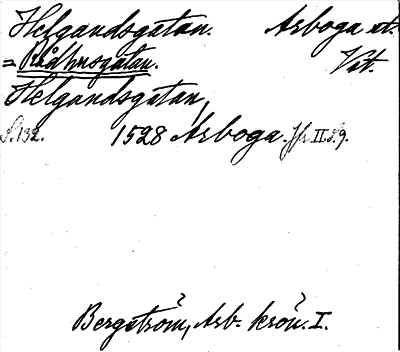 Helgandsgatan. Arboga st.
= Rådhusgatan. Vst.
Helgandsgatan,
S. 132. 1528 Arboga. Jfr II S. 9.
Bergström, Arb. krön. I.